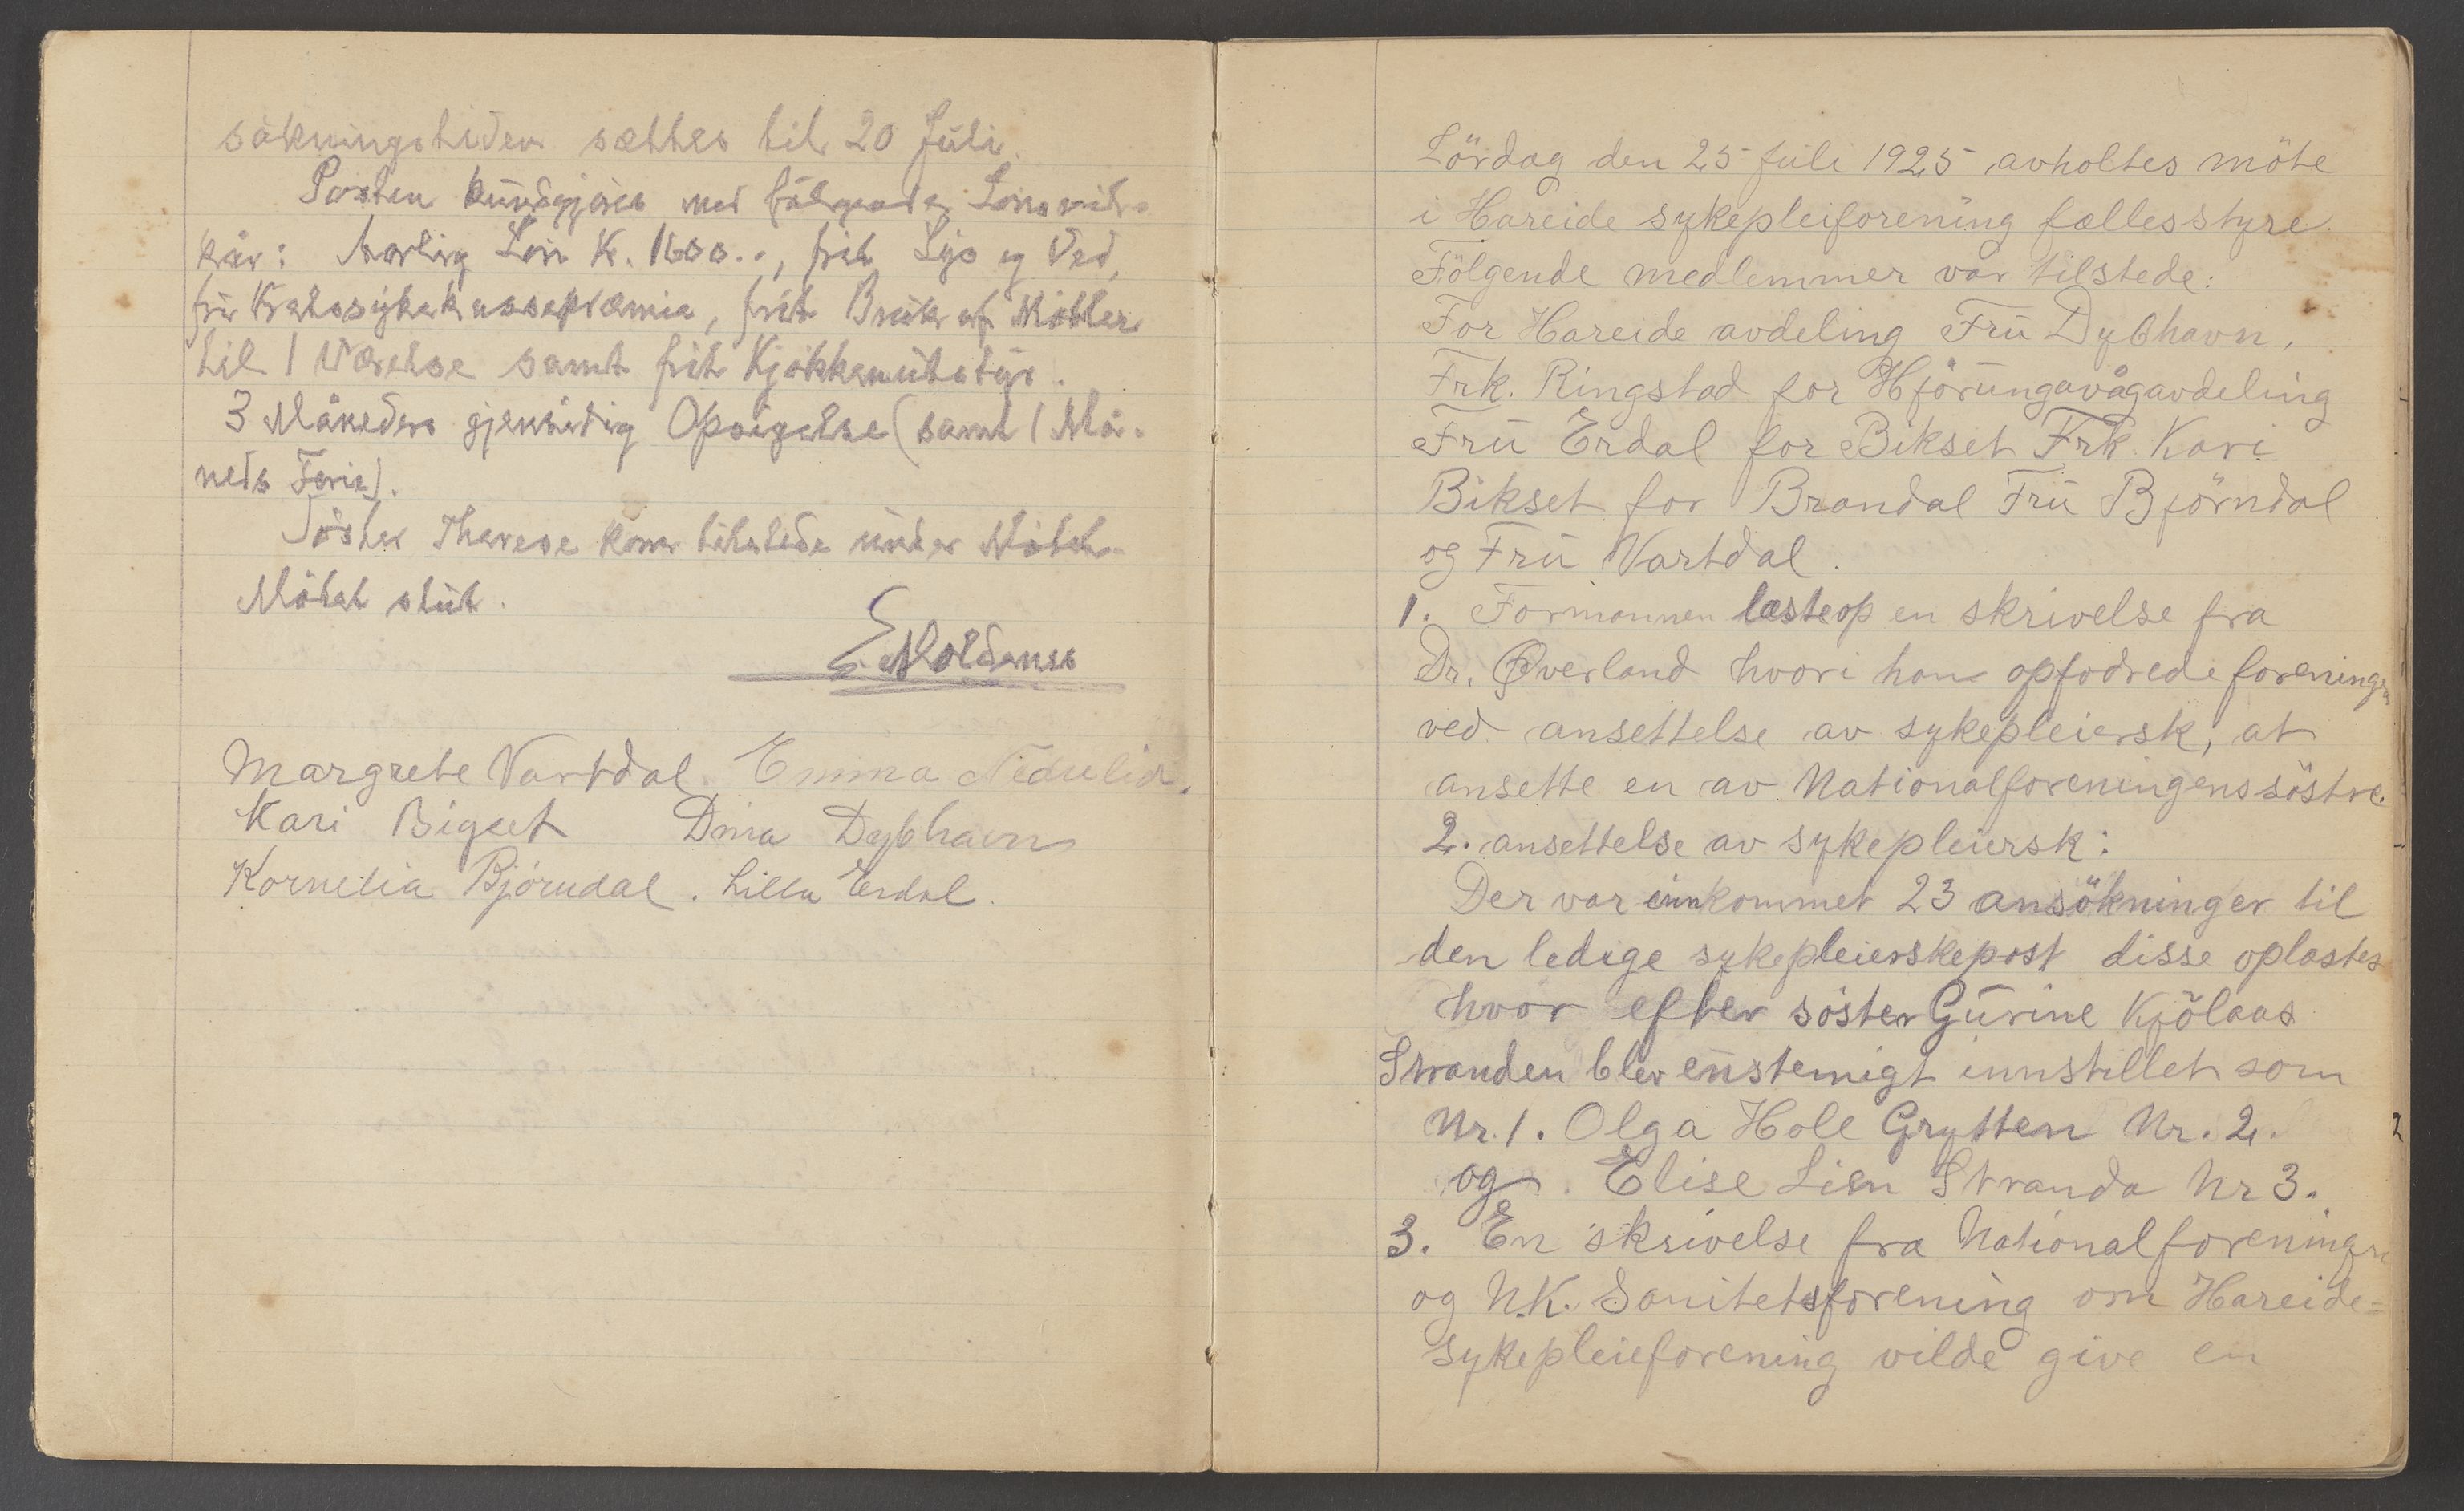 sökningstiden sættes til 20 Juli.
Posten kundgjöres med fölgende Lönsvil-
kår: Aarlig Lön K. 1600.., frit Lys og Ved,
fri Kretssykekassepræmie, frit Bruk af Möbler
til 1 Værelse samt frit Kjökkenutstyr.
3 Måneders gjensidig Opsigelse (samt 1 Må-
neds Ferie).
Söster Therese kom tilstede under Mötet.
Mötet slut.
E. Moldenes
Margrete Vartdal. Emma
Kari Bigset Dina Dybhavn
Kornelia Björndal. Lilla Erdal.
Lördag den 25 juli 1925 avholtes möte
i Hareide sykepleiforening fællesstyre.
Fölgende medlemmer var tilstede:
For Hareide avdeling Fru Dybhavn,
Frk. Ringstad for Hjörungavågavdeling
Fru Erdal for Bikset Frk. Kari
Bikset for Brandal Fru Björndal
og Fru Vartdal.
1. Formannen læste op en skrivelse fra
Dr. Øverland hvori han opfodrede foreningen
ved ansettelse av sykepleiersk, at
ansette en av Nationalforeningens söstre.
2. ansettelse av sykepleiersk:
Der var innkommet 23 ansökninger til
den ledige sykepleierskepost disse oplæstes
hvor efter söster Gurine Kjölaas
Stranden blev enstemigt innstillet som
Nr. 1. Olga Hole Grytten Nr. 2.
og Elise Lien Stranda Nr 3.
3. En skrivelse fra Nationalforeningen
og N.K. Sanitetsforening om Hareide=
sykepleieforening vilde give en